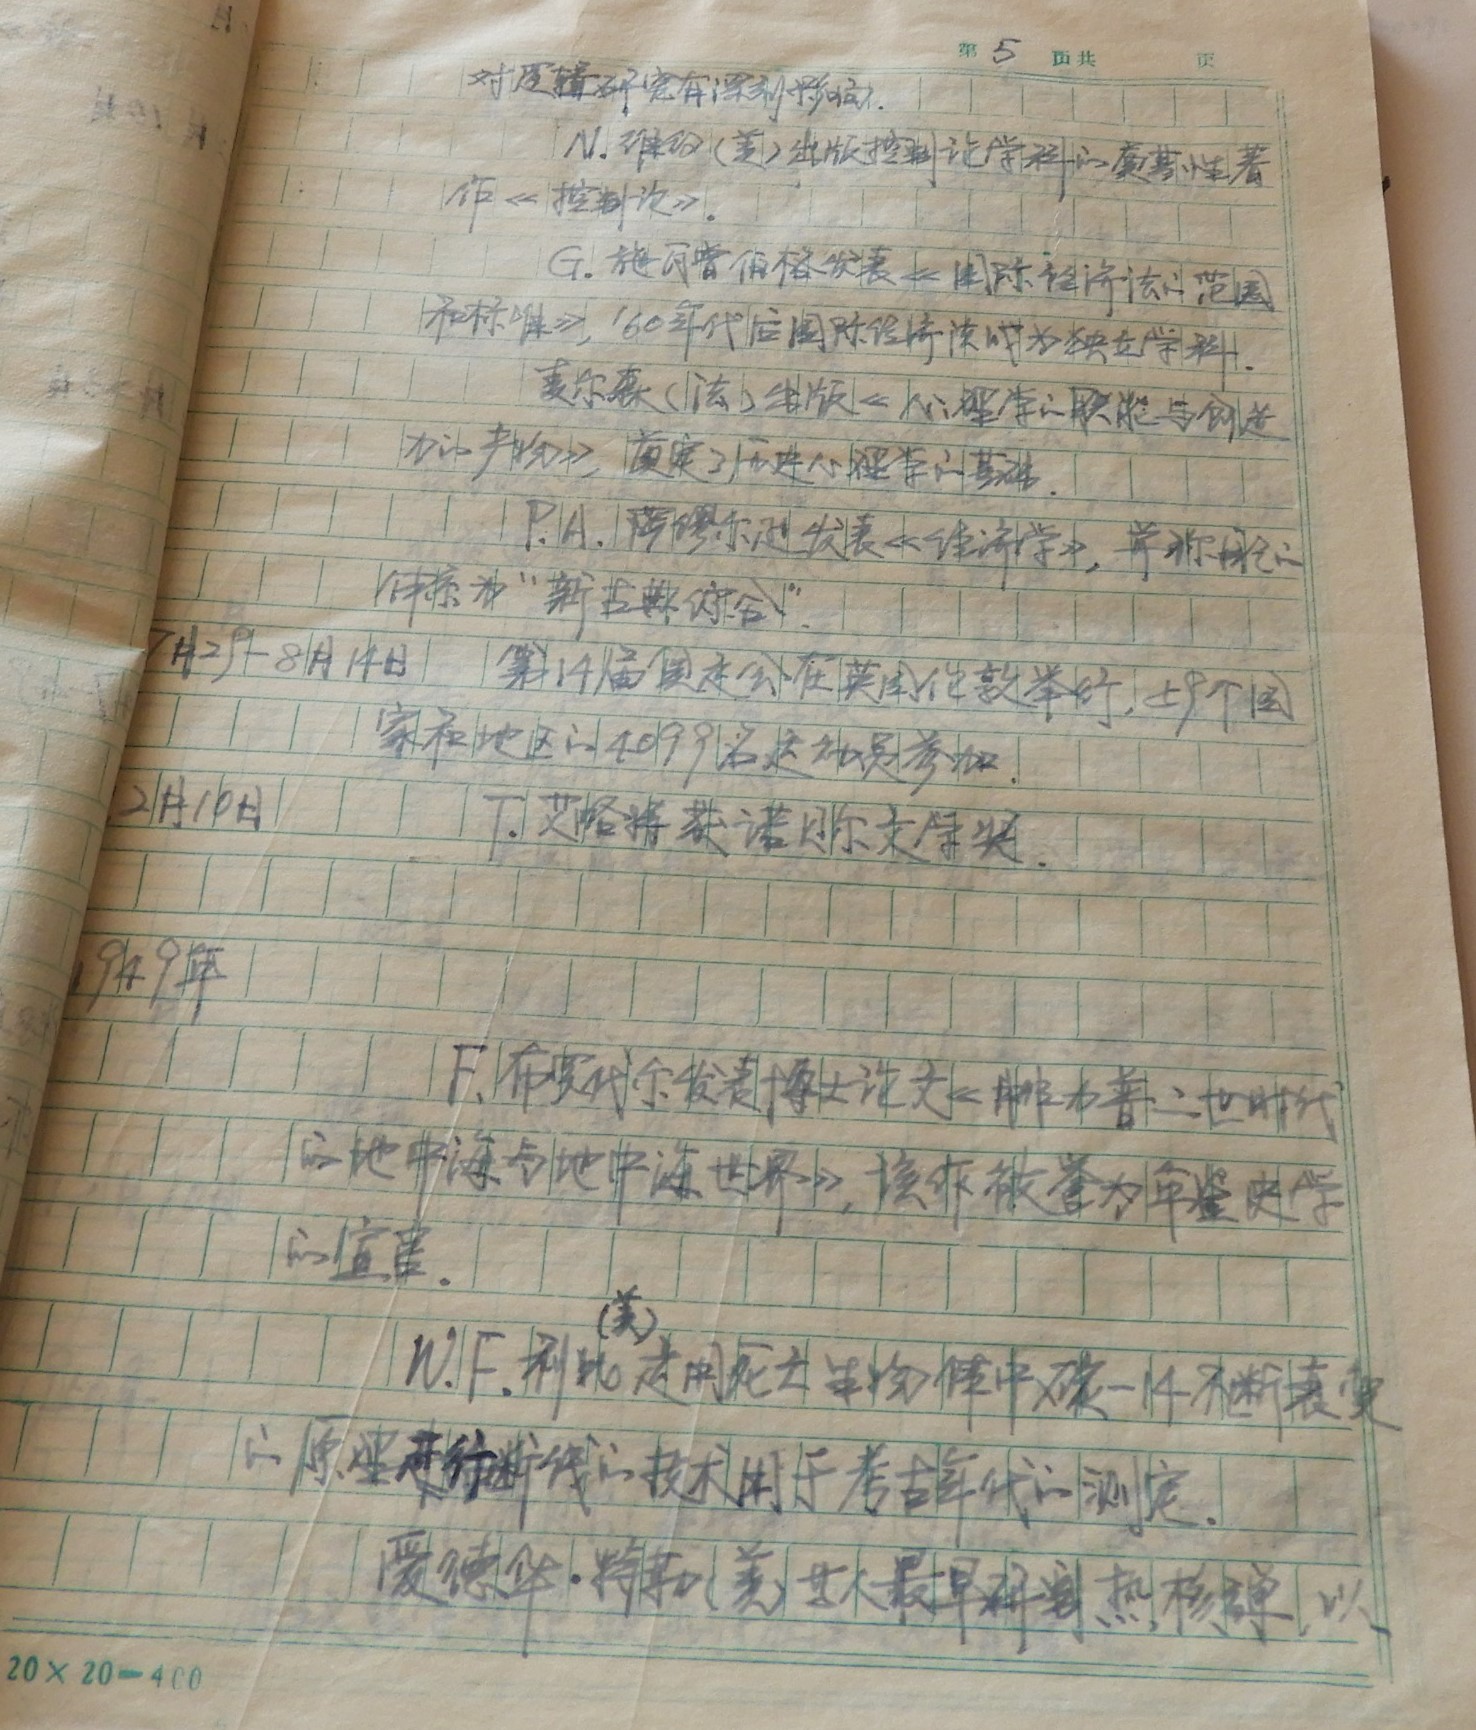 第 5 页共 页
对逻辑研究有深刻影响.
N. 维纳(美)出版控制论学科的奠基性著
作《控制论》.
G. 施瓦曾伯格发表《国际经济法的范围
和标准》, '60年代后国际经济法成为独立学科.
麦尔森(法)出版《心理学的职能与创造
力的产物》, 奠定了历史心理学的基础.
P.A. 萨缪尔逊发表《经济学》, 并称自己的
体系为“新古典综合”.
7月29-8月14日 第14届奥运会在英国伦敦举行, 59个国
家和地区的4099名运动员参加.
2月10日 T. 艾略特获诺贝尔文学奖.
1949年
F. 布罗代尔发表博士论文《腓力普二世时代
的地中海与地中海世界》, 该作被誉为年鉴史学
的宣言.
(美)
W.F. 利比 走用死去生物体中碳-14不断衰变
的原理进行断代的技术用于考古年代的测定.
爱德华·特勒(美)等人最早研制热核弹, 以
20×20=400